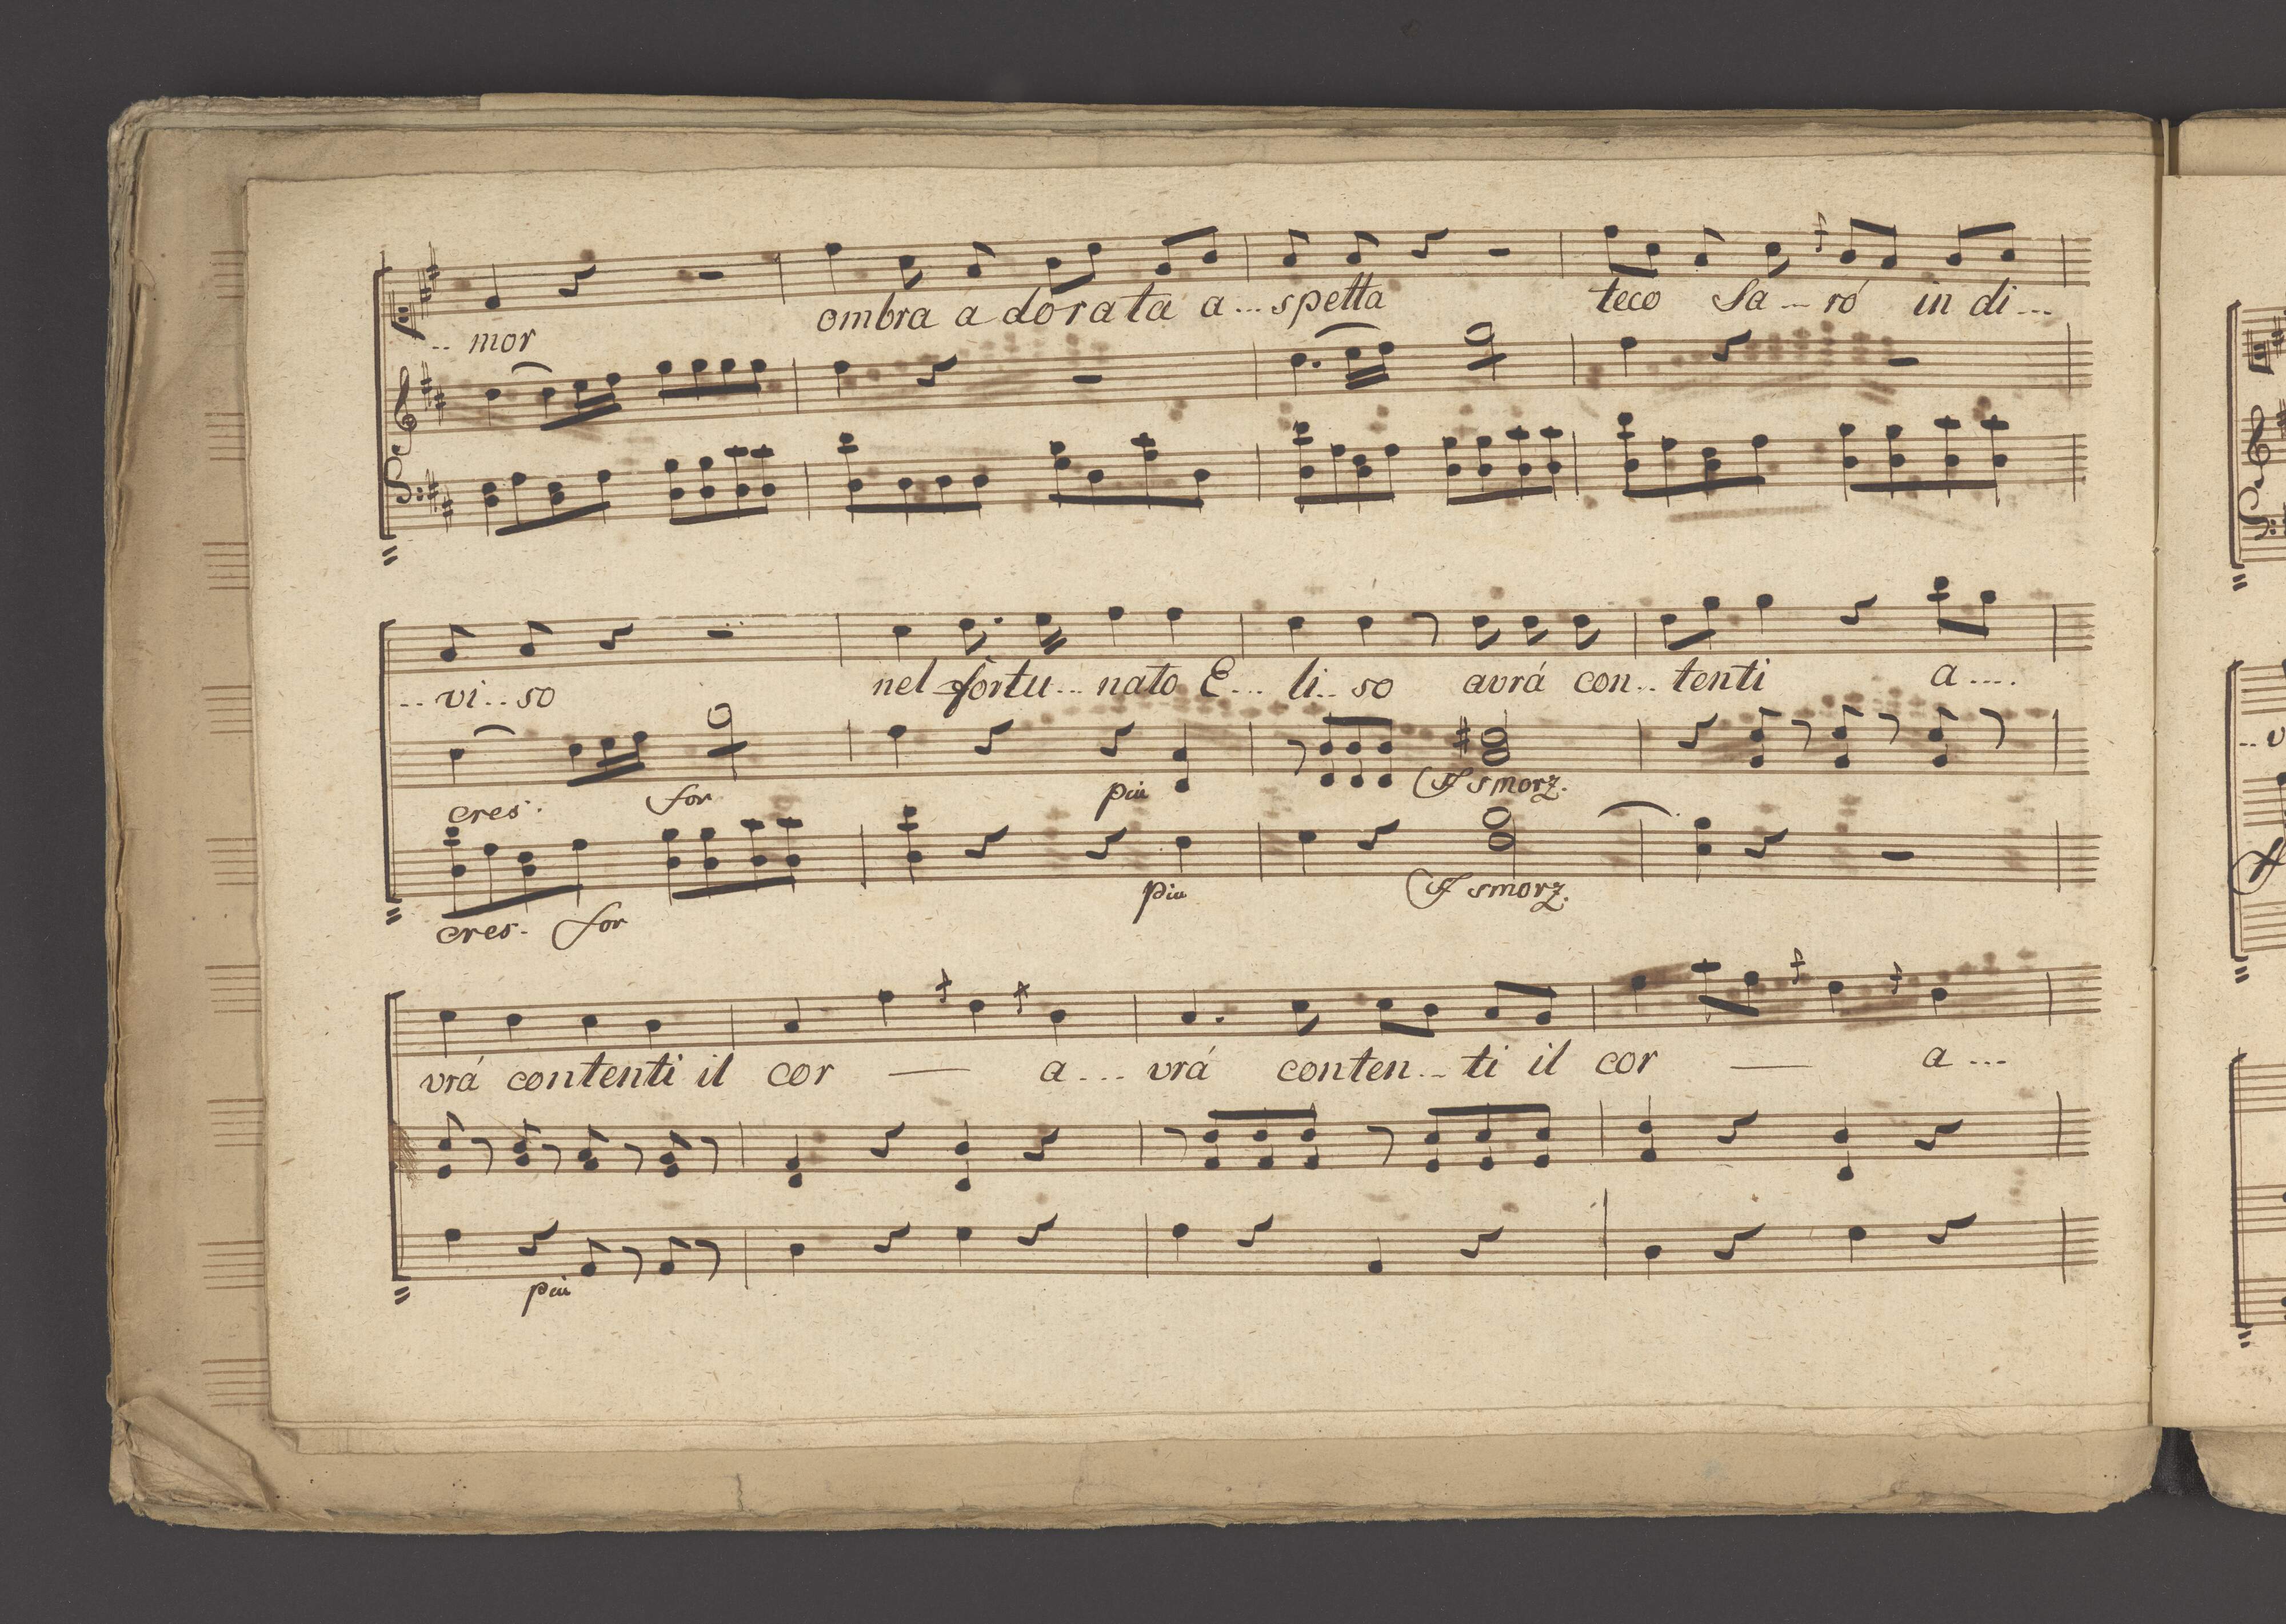 .. mor ombra a dorata a... spetta teco Sa -- ró in di...
.. vi.. so nel fortu... nato E... li.. so avrá con.. tenti a....
cres. for piu smorz.
cres. for piu smorz.
vrá contenti il cor — a... vrá conten... ti il cor — a...
piu